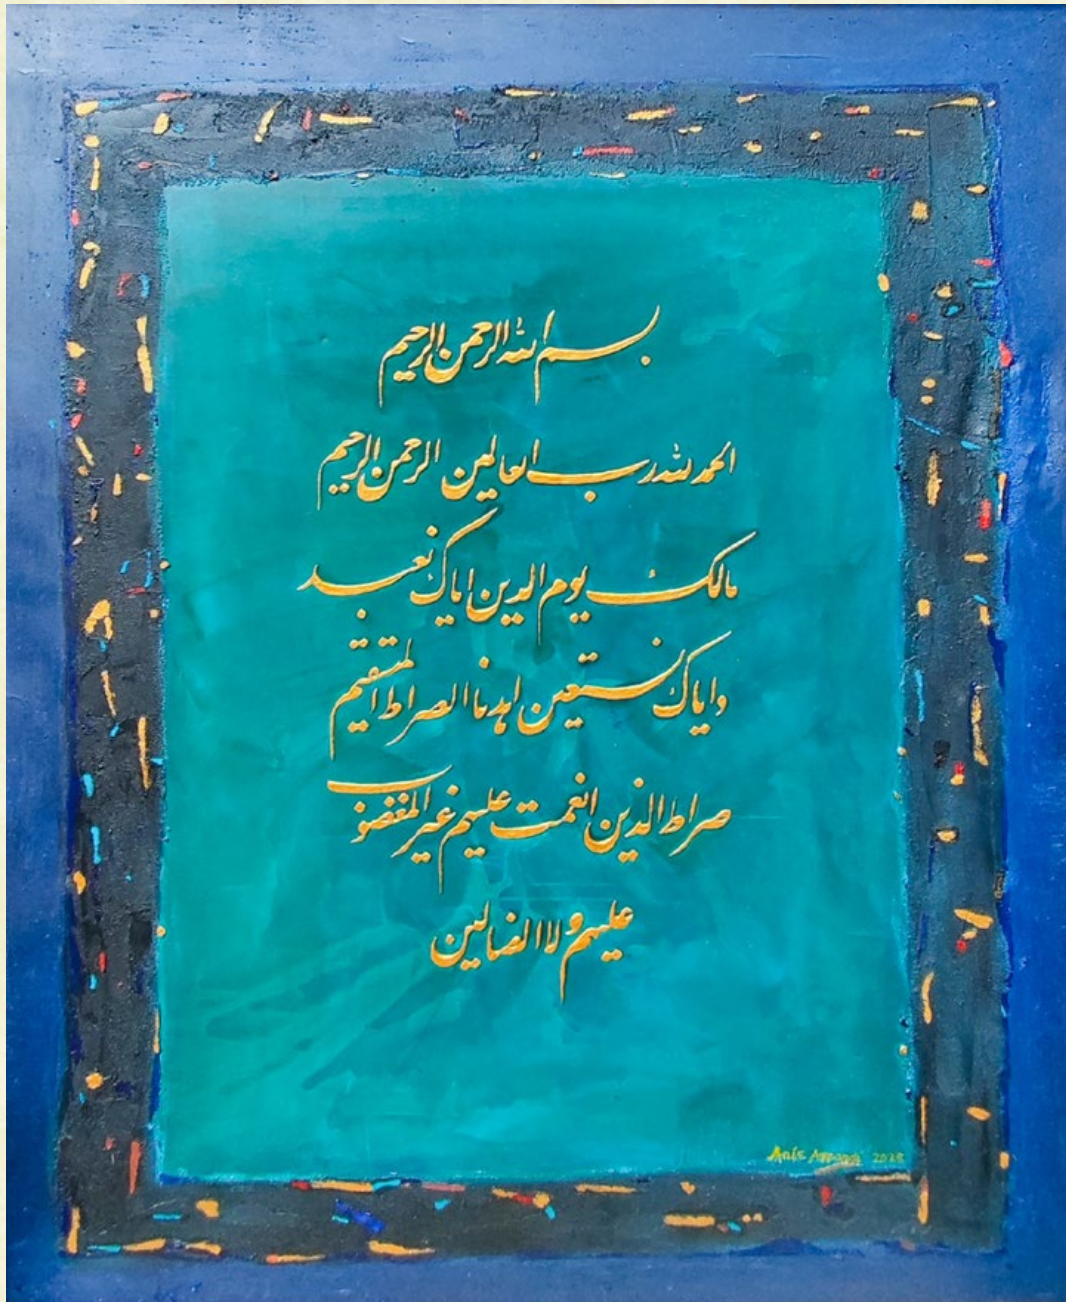 بسم الله الرحمن الرحيم
الحمد لله رب العالمين الرحمن الرحيم
مالك يوم الدين اياك نعبد
واياك نستعين اهدنا الصراط المستقيم
صراط الذين انعمت عليهم غير المغضوب
عليهم ولا الضالين
Anis